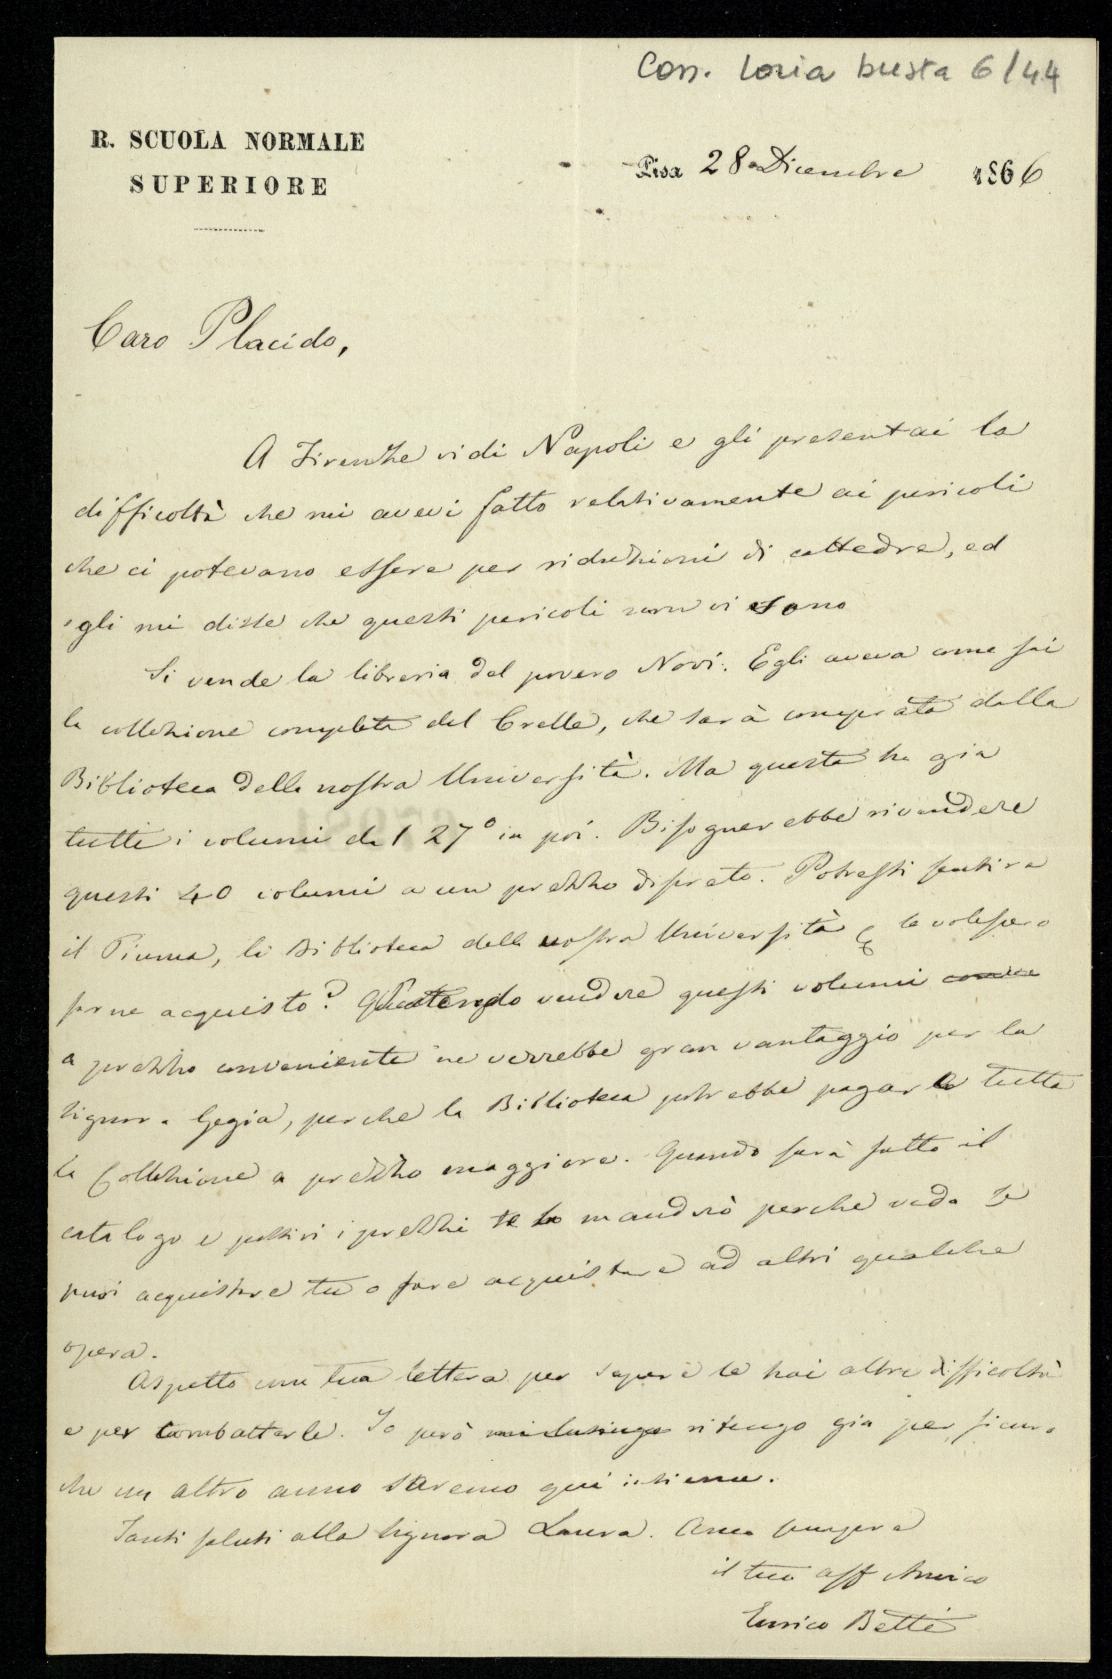 Corr. Loria busta 6/44
R. SCUOLA NORMALE
SUPERIORE
Pisa 28 Dicembre 1866
Caro Placido,
A Firenze vidi Napoli e gli presentai la
difficoltà che mi avevi fatto relativamente ai pericoli
che ci potevano essere per riduzioni di cattedre, ed
egli mi disse che questi pericoli non vi sono
Si vende la libreria del povero Novi. Egli aveva come sai
la collezione completa del Crelle, che sarà comprata dalla
Biblioteca della nostra Università. Ma questa ha gia
tutti i volumi dal 27º in poi. Bisognerebbe rivendere
questi 40 volumi a un prezzo discreto. Potresti sentire
il Piuma, la Biblioteca della vostra Università se volessero
farne acquisto? Potendo vendere questi volumi
a prezzo conveniente ne verrebbe gran vantaggio per la
signora Gegia, perche la Biblioteca potrebbe pagare tutta
la Collezione a prezzo maggiore. Quando sarà fatto il
catalogo e messivi i prezzi te lo manderò perche veda se
vuoi acquistare tu o fare acquistare ad altri qualche
opera.
Aspetto una tua lettera per sapere se hai altre difficoltà
e per combatterle. Io però mi lusingo ritengo gia per sicuro
che un altro anno staremo qui insieme.
Tanti saluti alla Signora Laura. Ama sempre
il tuo aff Amico
Enrico Betti